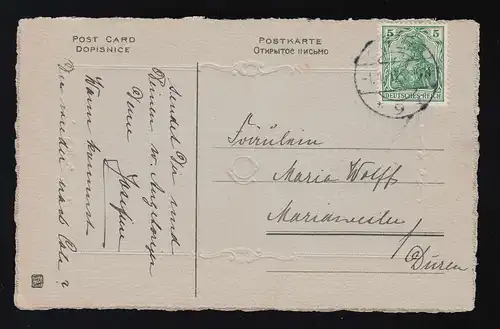 POST CARD
DOPISNICE
POSTKARTE
ОТКРЫТОЕ ПИСЬМО
5 5
DEUTSCHES REICH
9
sendet Dir und
Deinen w. Angehörigen
Deine
Josefine
Wann kommst
Du wieder nach Cöln?
Fräulein
Maria Wolff
Mariaweiler
Düren